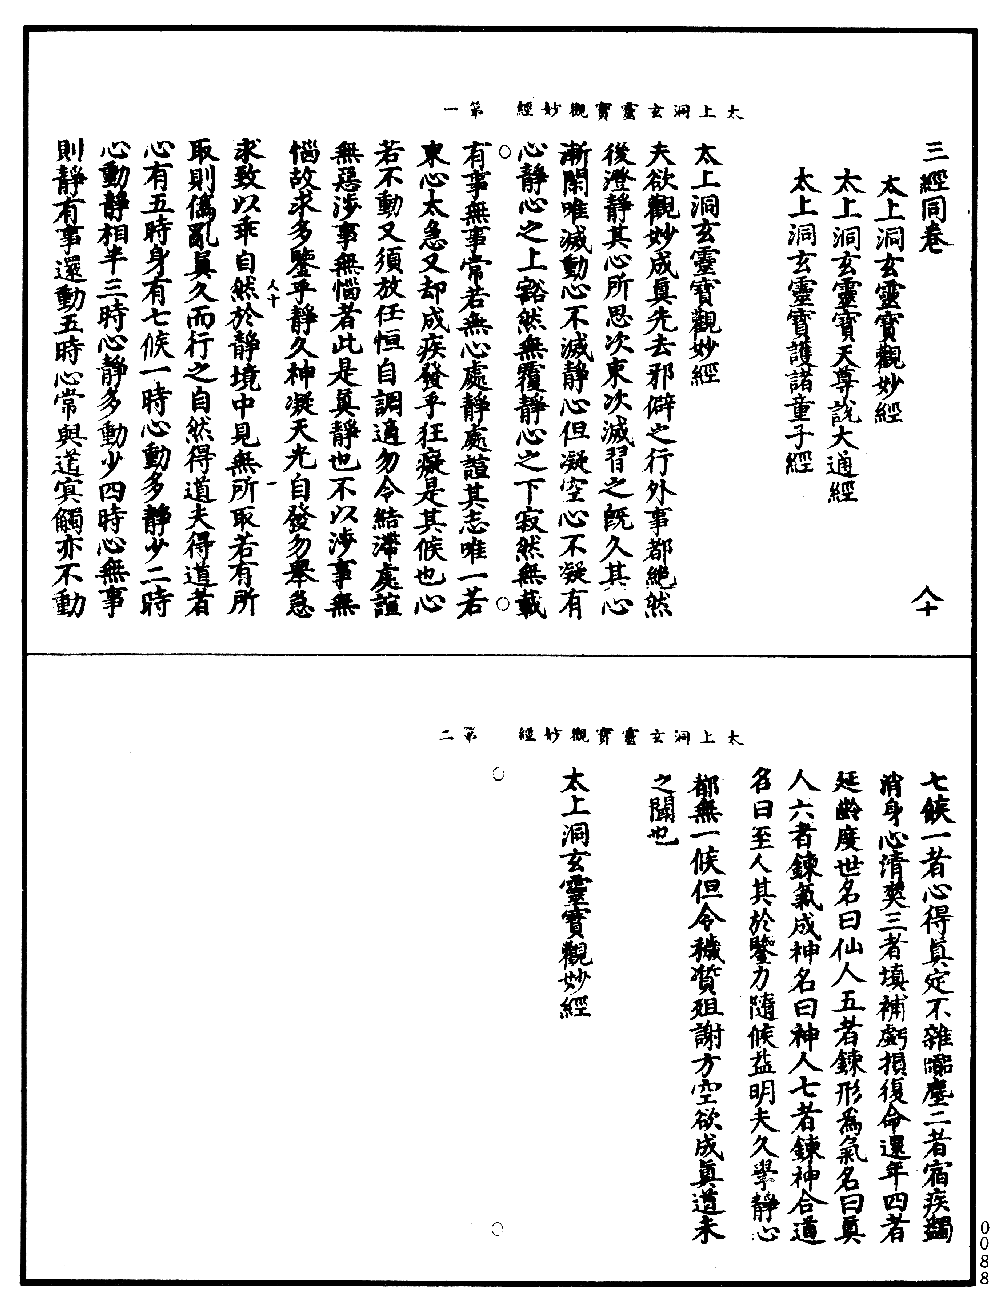 太上洞玄靈寶觀妙經　第一
三經同卷　人十
太上洞玄靈寶觀妙經
太上洞玄靈寶天尊說大通經
太上洞玄靈寶護諸童子經
太上洞玄靈寶觀妙經
夫欲觀妙成真先去邪僻之行外事都絕然
後澄靜其心所思次束次滅習之既久其心
漸閑唯滅動心不滅靜心但凝空心不凝有
心靜心之上豁然無覆靜心之下寂然無載
有事無事常若無心處靜處諠其志唯一若
束心太急又却成疾發乎狂癡是其候也心
若不動又須放任恒自調適勿令結滯處諠
無惡涉事無惱者此是真靜也不以涉事無
惱故求多鑒乎靜久神凝天光自發勿舉急
人十　一
求致以乖自然於靜境中見無所取若有所
取則僞亂真久而行之自然得道夫得道者
心有五時身有七候一時心動多靜少二時
心動靜相半三時心靜多動少四時心無事
則靜有事還動五時心常與道冥觸亦不動
太上洞玄靈寶觀妙經　第二
七候一者心得真定不雜囂塵二者宿疾蠲
消身心清爽三者填補虧損復命還年四者
延齡度世名曰仙人五者鍊形爲氣名曰真
人六者鍊氣成神名曰神人七者鍊神合道
名曰至人其於鑒力隨候益明夫久學靜心
都無一候但令穢質殂謝方空欲成真道未
之聞也
太上洞玄靈寶觀妙經
0088